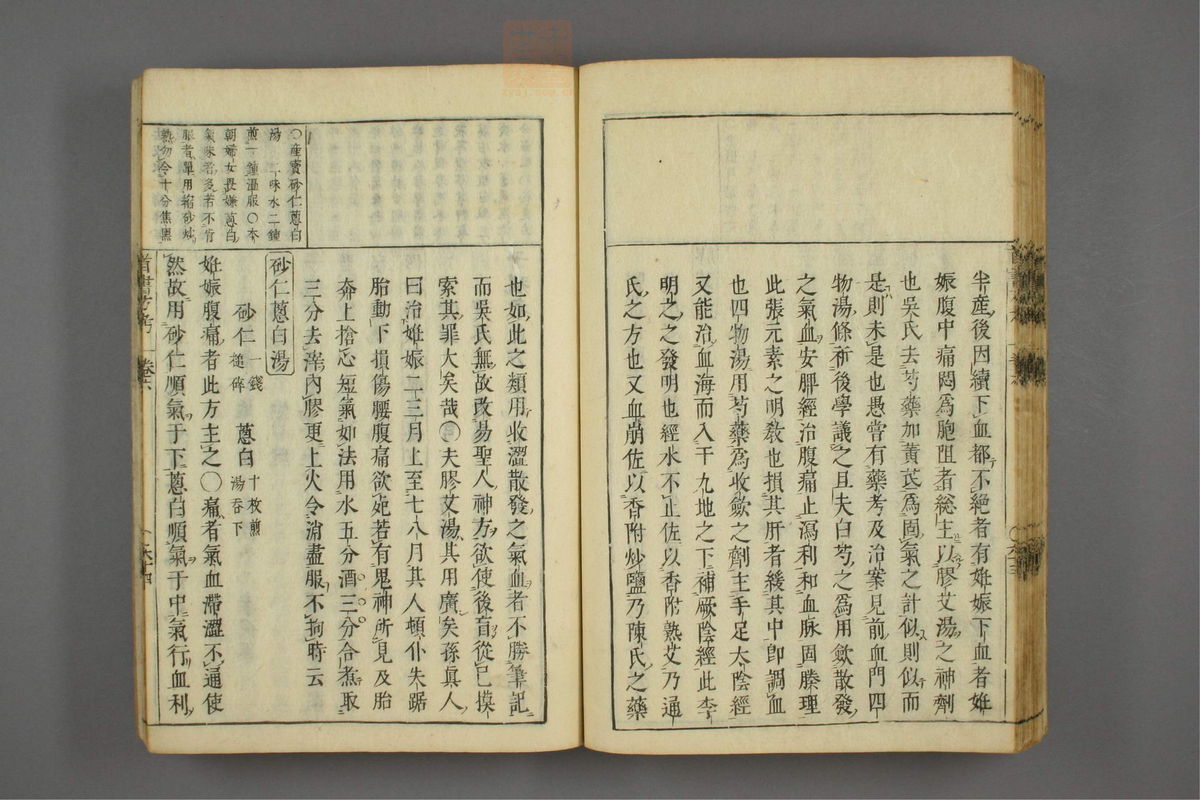 半産後因續下血都不絶者有妊娠下血者妊
娠腹中痛悶爲胞阻者総主以膠艾湯之神劑
也吳氏去芍藥加黃芪爲固氣之計似則似而
是則未是也愚嘗有藥考及治案見前血門四
物湯條祈後學議之且夫白芍之爲用斂散發
之氣血安脾經治腹痛止瀉利和血脉固腠理
此張元素之明敎也損其肝者緩其中卽調血
也四物湯用芍藥爲收斂之劑主手足太陰經
又能治血海而入于九地之下補厥陰經此李
明之之發明也經水不正佐以香附熟艾乃通
氏之方也又血崩佐以香附炒鹽乃陳氏之藥
也如此之類用收澀散發之氣血者不勝筆記
而吳氏無故改易聖人神方欲使後盲從己摸
索其罪大矣哉○夫膠艾湯其用廣矣孫真人
曰治妊娠二三月上至七八月其人頓仆失踞
胎動下損傷腰腹痛欲死若有鬼神所見及胎
奔上搶心短氣如法用水五分酒三分合煮取
三分去滓內膠更上火令消盡服不拘時云
○産寶砂仁蔥白
湯 一味水二鍾
煎一鍾溫服○本
朝婦女畏嫌蔥白
氣味者多若不肯
服者單用縮砂炒
熟勿令十分焦黑
砂仁蔥白湯
砂仁 一錢槌碎 蔥白 十枚煎湯吞下
妊娠腹痛者此方主之○痛者氣血滯澀不通使
然故用砂仁順氣于下蔥白順氣于中氣行血利
卷六